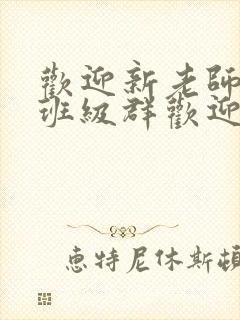 歡迎新老師
班級群歡迎
惠特尼休斯頓